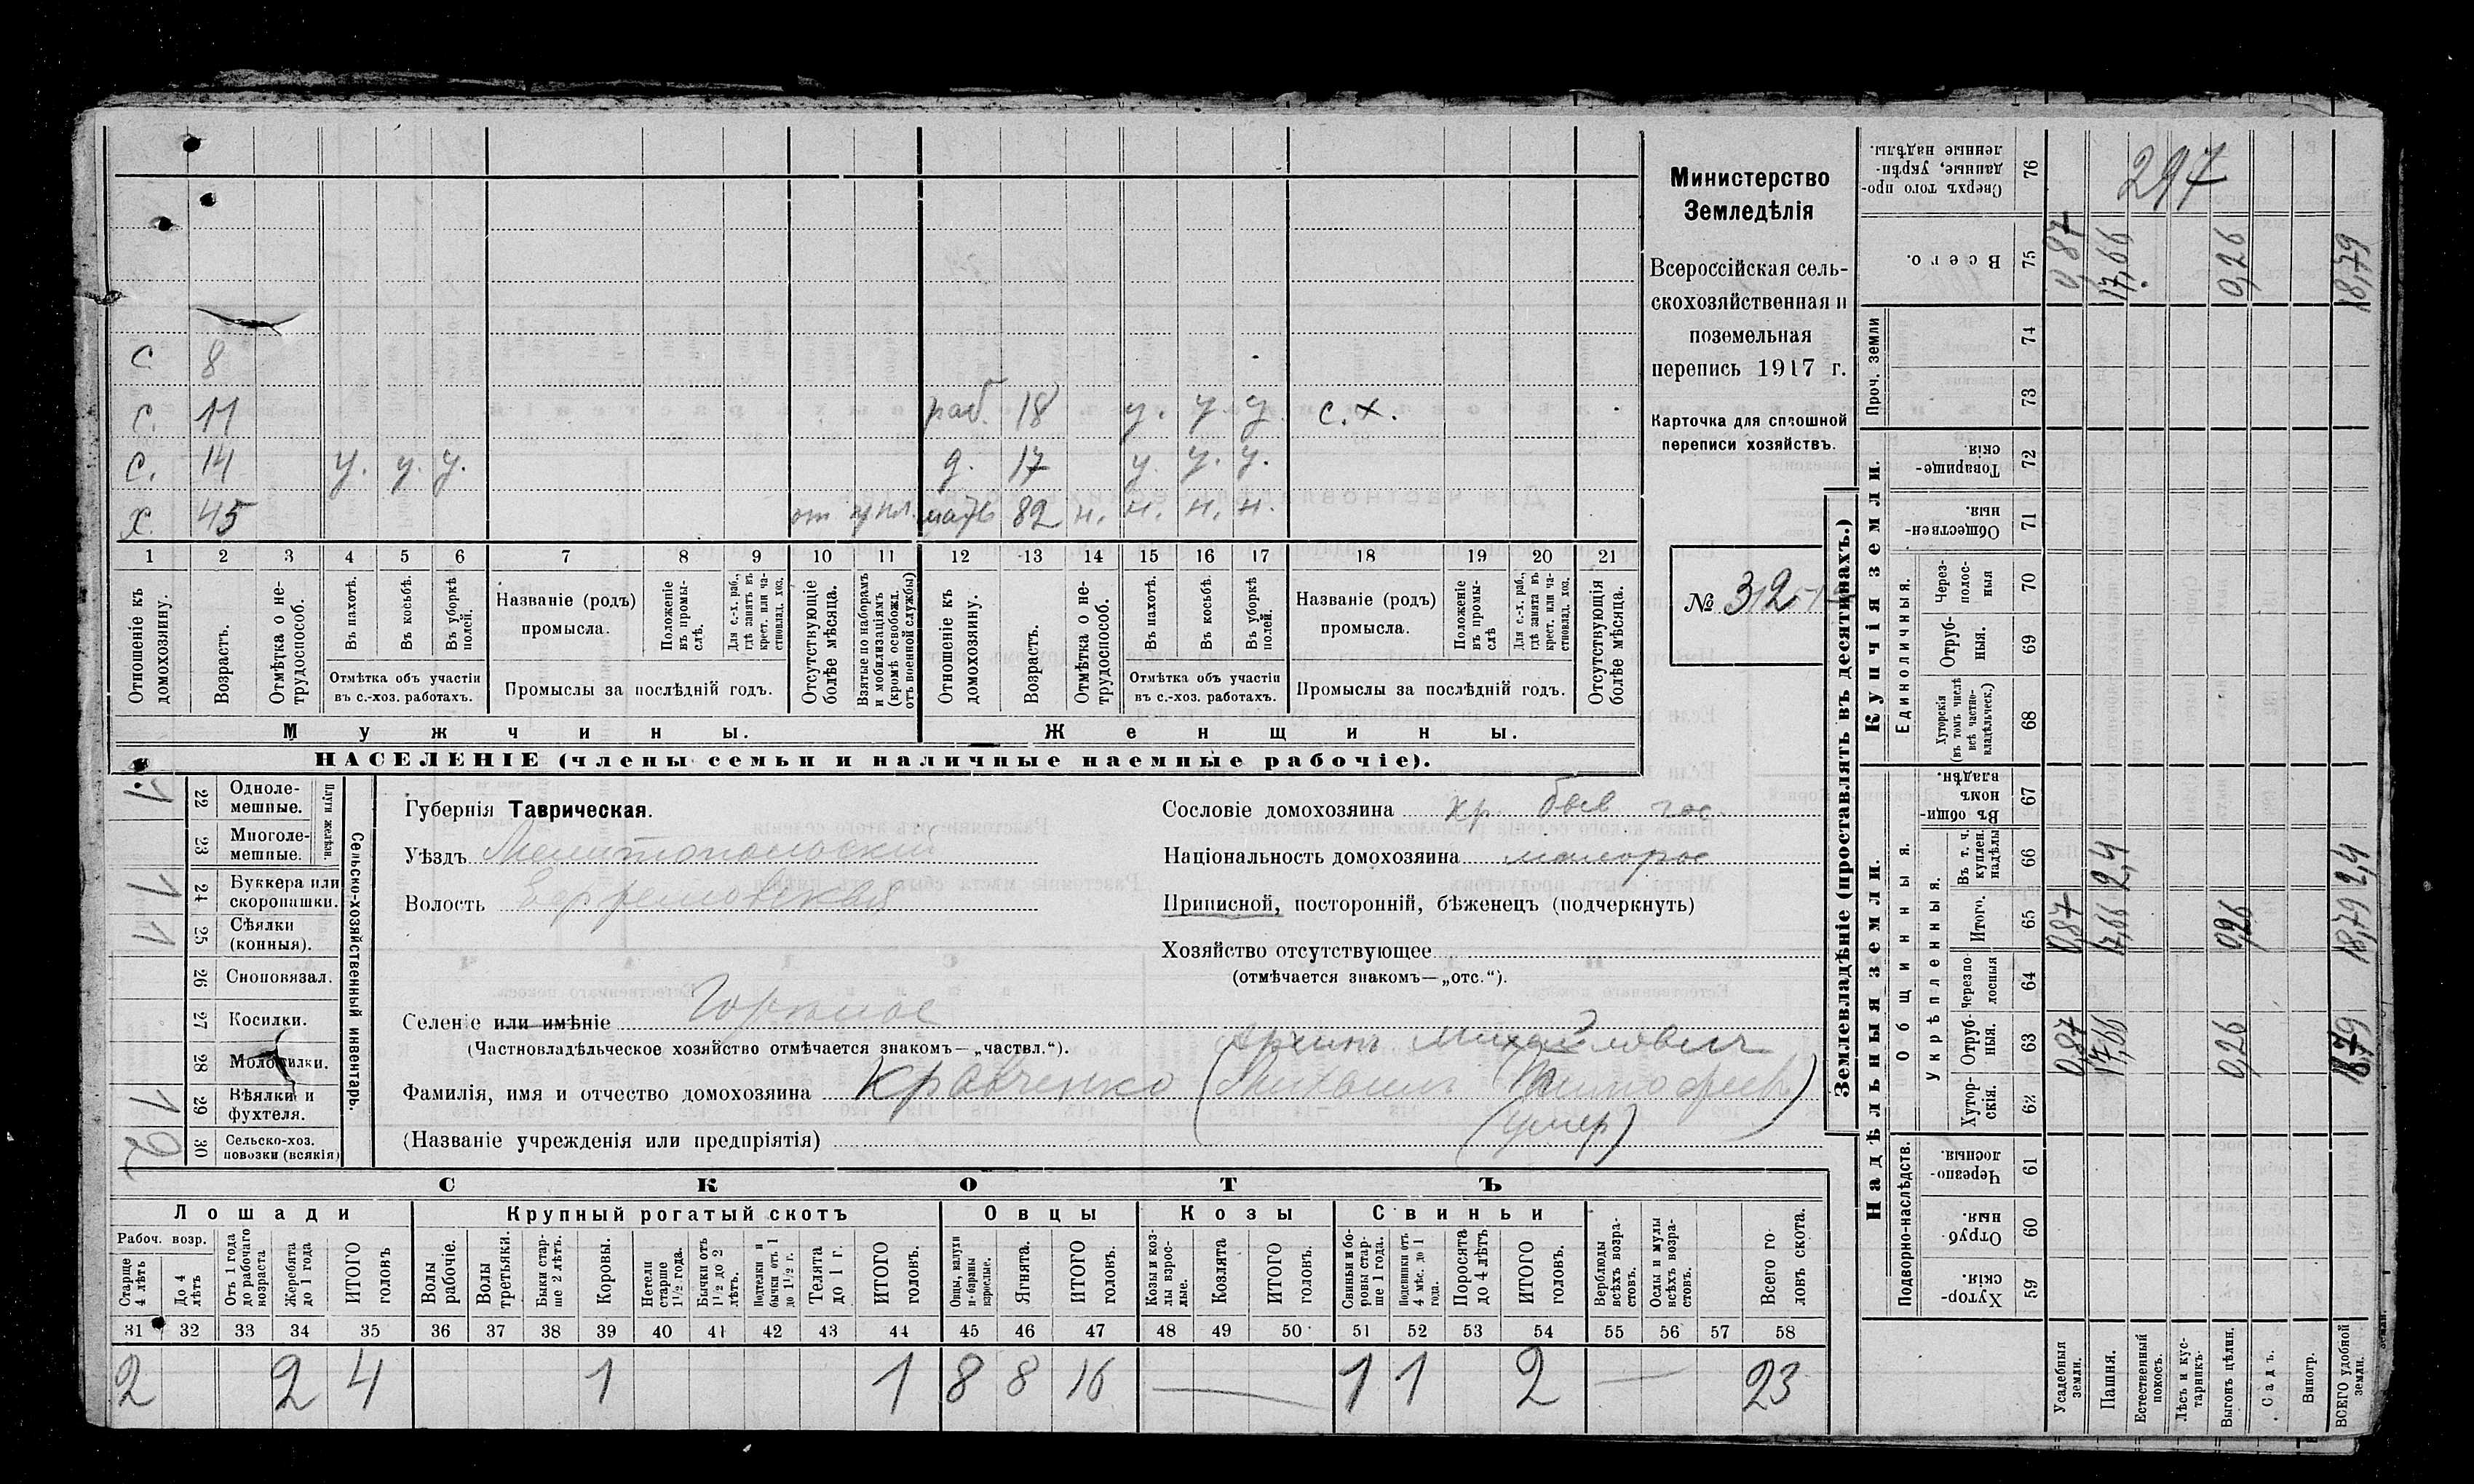 Министерство
Земледѣлія
Всероссійская сель-
скохозяйственная и
поземельная
перепись 1917 г.
Карточка для сплошной
переписи хозяйствъ.
№ 312
с 8
с. 11
раб. 18 у. у у с.х.
с. 14 у. у. у.
д. 17 у. у. у.
х 45 от
мать 82 н. н. н. н.
1 2 3 4 5 6 7 8 9 10 11 12 13 14 15 16 17 18 19 20 21
Отношеніе къ домохозяину.
Возрастъ.
Отмѣтка о не-трудоспособ.
Въ пахотѣ.
Въ косьбѣ.
Въ уборкѣ полей.
Отмѣтка объ участіи
въ с.-хоз. работахъ.
Названіе (родъ)
промысла.
Положеніе въ промы-слѣ.
Для с.-х. раб., гдѣ занятъ въ крест. или ча-стновлад. хоз.
Промыслы за послѣдній годъ.
Отсутствующіе болѣе мѣсяца.
Взятые по наборамъ и мобилизаціямъ (кромѣ освобожд. отъ военной службы)
Отношеніе къ домохозяину.
Возрастъ.
Отмѣтка о не-трудоспособ.
Въ пахотѣ.
Въ косьбѣ.
Въ уборкѣ полей.
Отмѣтка объ участіи
въ с.-хоз. работахъ.
Названіе (родъ)
промысла.
Положеніе въ промы-слѣ
Для с.-х. раб., гдѣ занята въ крест. или ча-стновлад. хоз.
Промыслы за послѣдній годъ.
Отсутствующія болѣе мѣсяца.
Мужчины.
Женщины.
НАСЕЛЕНІЕ (члены семьи и наличные наемные рабочіе).
Сельско-хозяйственный инвентарь.
Плуги желѣзн.
22 Одноле-мешные. 1
23 Многоле-мешные.
24 Буккера или скоропашки. 1
25 Сѣялки (конныя). 1
26 Сноповязал.
27 Косилки.
28 Молотилки.
29 Вѣялки и фухтеля. 1
30 Сельско-хоз. повозки (всякія) 2
Губернія Таврическая.
Уѣздъ Мелитопольскій
Волость Ефремовская
Селеніе или имѣніе Горькое
(Частновладѣльческое хозяйство отмѣчается знакомъ—„частвл.“).
Архипъ Михайловичъ
Фамилія, имя и отчество домохозяина Кравченко (Михаилъ Тимофеев)
(Названіе учрежденія или предпріятія) (умер)
Сословіе домохозяина кр. быв гос.
Національность домохозяина малорос
Приписной, посторонній, бѣженецъ (подчеркнуть)
Хозяйство отсутствующее
(отмѣчается знакомъ—„отс.“).
СКОТЪ
Лошади
Крупный рогатый скотъ
Овцы
Козы
Свиньи
Рабоч. возр.
Старше 4 лѣтъ
До 4 лѣтъ
Отъ 1 года до рабочаго возраста
Жеребята до 1 года
ИТОГО головъ
Волы рабочіе.
Волы третьяки.
Быки стар-ше 2 лѣтъ.
Коровы.
Нетели старше 1½ года.
Бычки отъ 1½ до 2 лѣтъ.
Подтелки и бычки отъ 1 до 1½ г.
Телята до 1 г.
ИТОГО головъ.
Овцы, валухи и бараны взрослые.
Ягнята.
ИТОГО головъ.
Козы и коз-лы взрос-лые.
Козлята
ИТОГО головъ.
Свиньи и бо-ровы стар-ше 1 года.
Подсвинки отъ 4 мѣс. до 1 года.
Поросята до 4 лѣтъ
ИТОГО головъ.
Верблюды всѣхъ возра-стовъ.
Ослы и мулы всѣхъ возра-стовъ.
Всего го-ловъ скота.
31 32 33 34 35 36 37 38 39 40 41 42 43 44 45 46 47 48 49 50 51 52 53 54 55 56 57 58
2 2 4 1 1 8 8 16 — 1 1 2 — 23
Землевладѣніе (проставлять въ десятинахъ.)
Надѣльныя земли.
Купчія земли.
Проч. земли
Подворно-наслѣдств.
Общинныя.
Укрѣпленныя.
Единоличныя.
Сверхъ того про-данные, укрѣп-ленные надѣлы. 76 297
Всего. 75 0,87 17,66 0,26 18,79
74
73
Товарище-скія 72
Обществен-ныя. 71
Через-полос-ныя 70
Отруб-ныя. 69
Хуторскія (въ томъ числѣ всѣ частно-владѣльческ.) 68
Въ общин-номъ владѣн. 67
Въ т. ч. куплен. надѣлы 66 2,4 2,4
Итого. 65 0,87 17,66 0,26 18,79
Черезпо-лосныя 64
Отруб-ныя. 63 0,87 17,66 0,26 18,79
Хутор-скія. 62
Черезпо-лосныя. 61
Отруб-ныя. 60
Хутор-скія. 59
Усадебныя земли.
Пашня.
Естественный покосъ.
Лѣсъ и кус-тарникъ.
Выгонъ цѣлин.
Садъ.
Виногр.
ВСЕГО удобной земли.